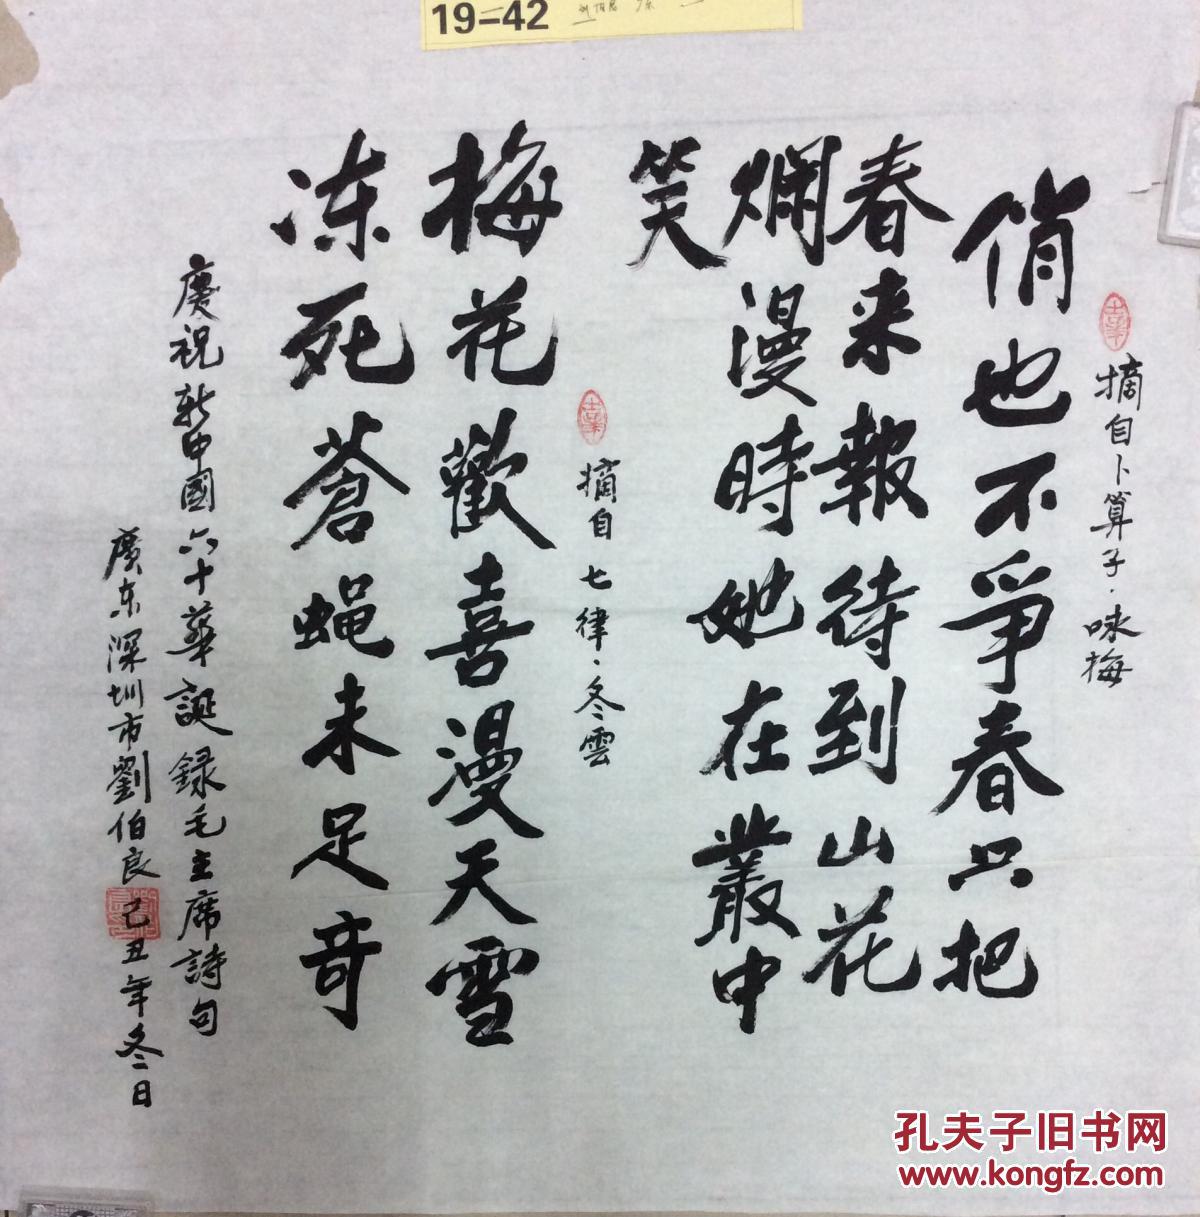 19-42
摘自卜算子·咏梅
俏也不爭春只把
春来報待到山花
爛漫時她在叢中
笑
摘自七律·冬雲
梅花歡喜漫天雪
冻死蒼蝇未足奇
慶祝新中國六十華誕録毛主席詩句
廣东深圳市劉伯良己丑年冬日
孔夫子旧书网
www.kongfz.com